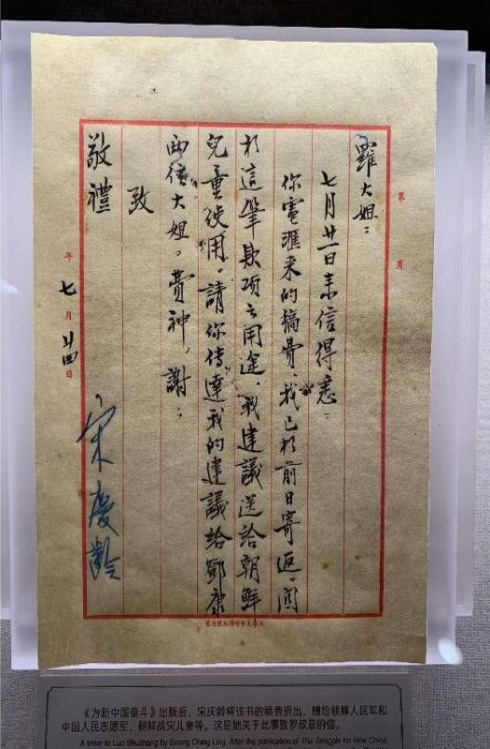 羅大姐：
七月廿一日来信得悉：
你電滙来的稿費，我已於前日寄返。関
於這筆欵項之用途，我建議送給朝鮮
兒童使用。請你傳達我的建議給鄧康
両位大姐。費神，謝：
致
敬禮
年七月廿四日
宋慶齡
第 頁
《为新中国奋斗》出版后，宋庆龄将该书的稿费捐出，赠给朝鲜人民军和
中国人民志愿军、朝鲜战灾儿童等。这是她关于此事致罗叔章的信。
A letter to Luo Shuzhang by Soong Ching Ling. After the publication of The Struggle for New China,